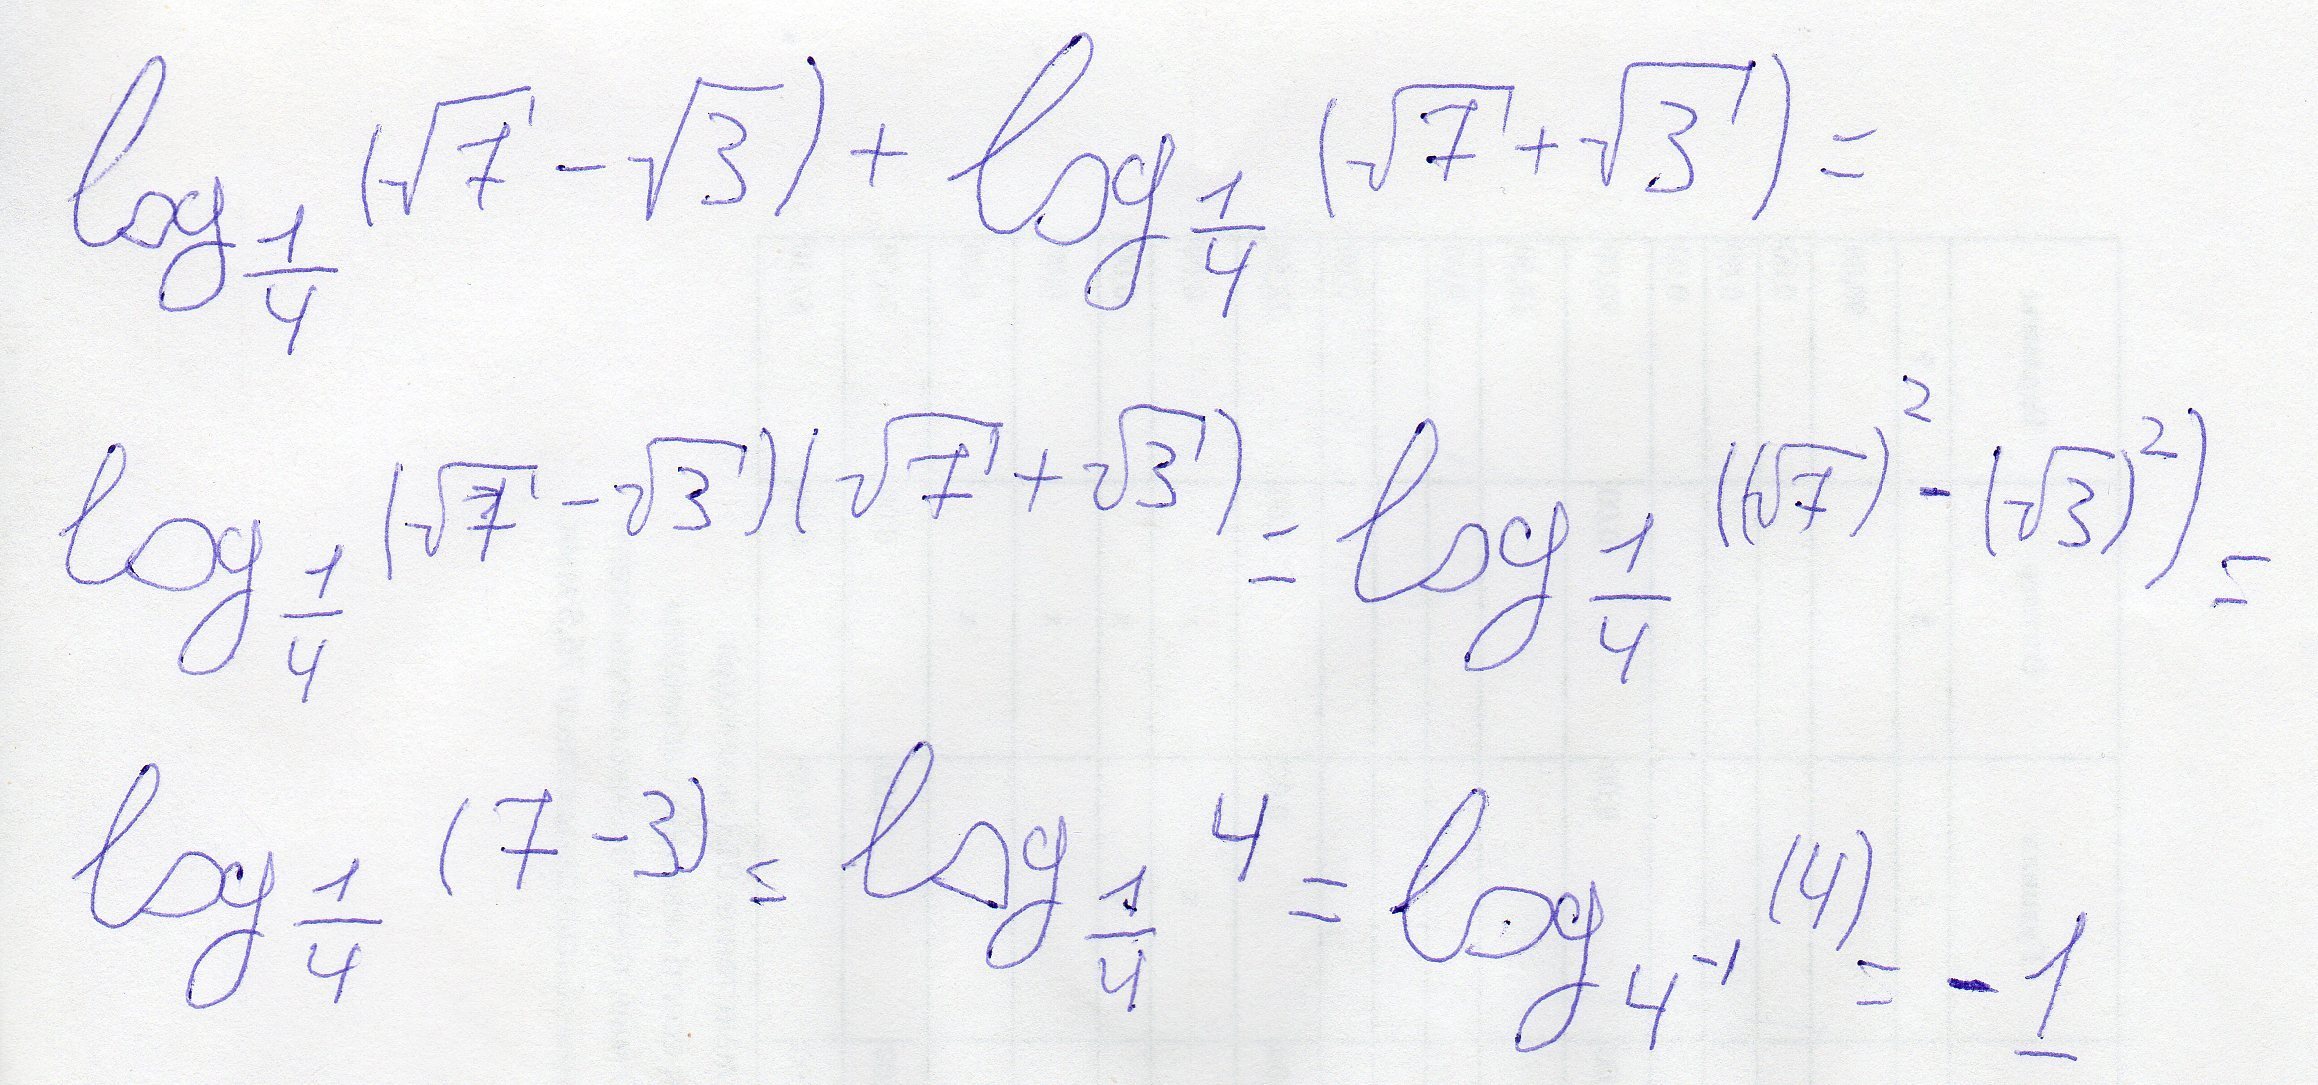 log_{1/4} (√7 - √3) + log_{1/4} (√7 + √3) =
log_{1/4} (√7 - √3)(√7 + √3) = log_{1/4} ((√7)² - (√3)²) =
log_{1/4} (7 - 3) = log_{1/4} 4 = log_{4⁻¹} (4) = -1